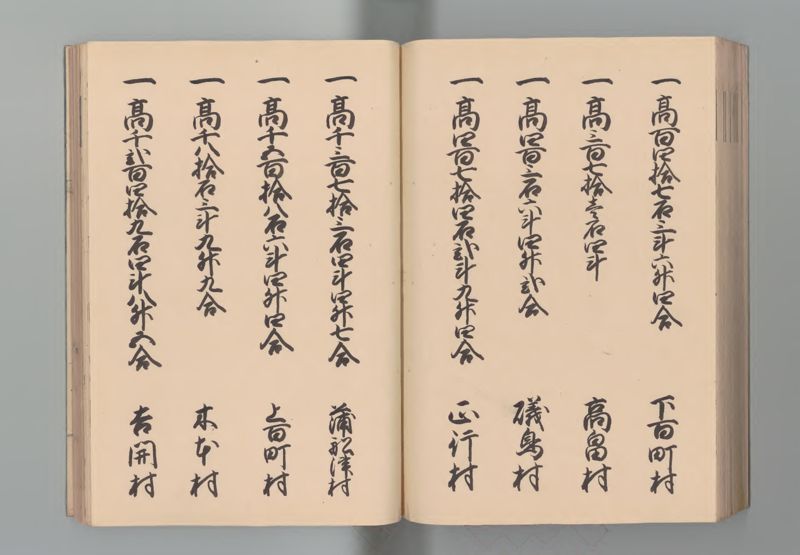 一高百四拾七石三斗六升四合 下百町村
一高三百七拾壱石四斗 高畠村
一高四百三石六斗四升弐合 磯鳥村
一高四百七拾四石弐斗九升四合 正行村
一高千三百七拾三石四斗四升七合 蒲船津村
一高千五百拾八石六斗四升四合 上百町村
一高千八拾石三斗九升九合 木本村
一高千弐百四拾九石四斗八升五合 吉開村